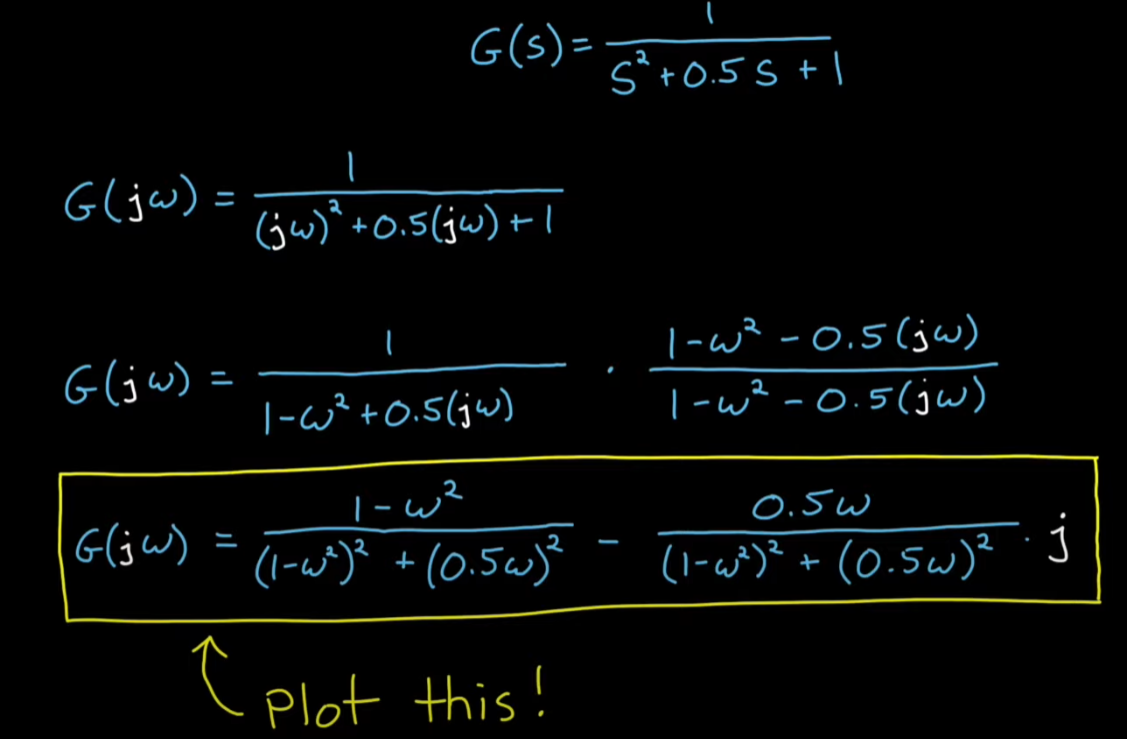 G(s) = 1 / (s² + 0.5s + 1)
G(jω) = 1 / ((jω)² + 0.5(jω) + 1)
G(jω) = 1 / (1-ω² + 0.5(jω)) · (1-ω² - 0.5(jω)) / (1-ω² - 0.5(jω))
G(jω) = (1-ω²) / ((1-ω²)² + (0.5ω)²) - 0.5ω / ((1-ω²)² + (0.5ω)²) · j
Plot this!